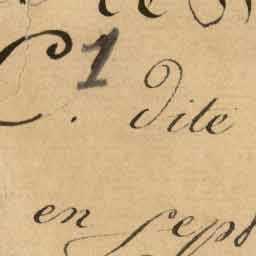 C. 1 dite
en sept